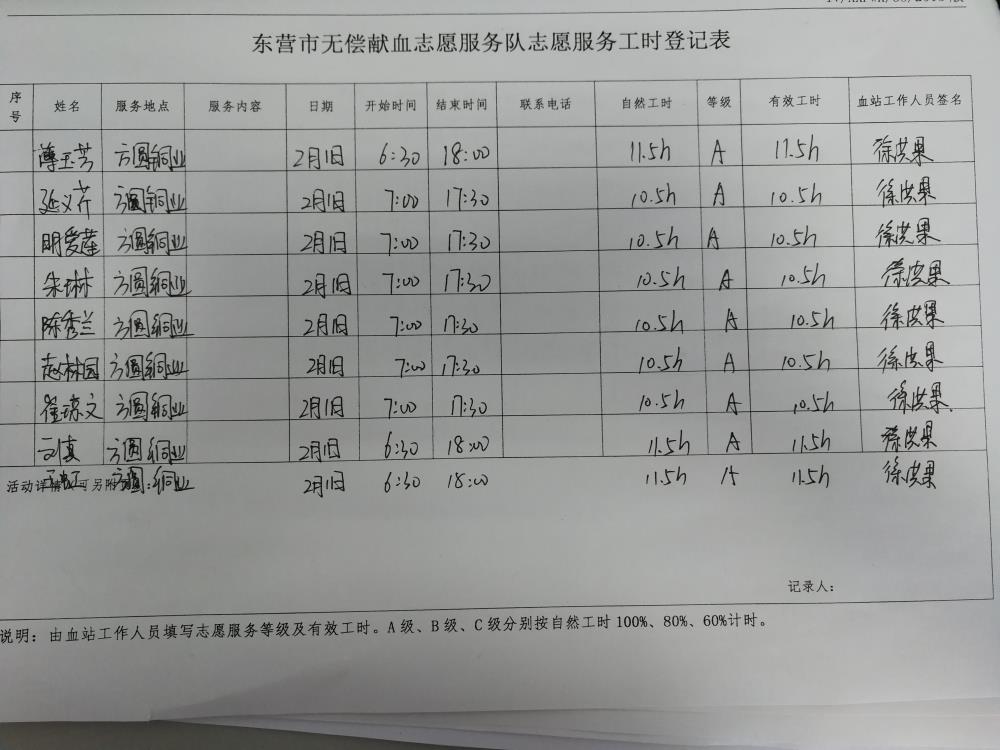 东营市无偿献血志愿服务队志愿服务工时登记表
序号 姓名 服务地点 服务内容 日期 开始时间 结束时间 联系电话 自然工时 等级 有效工时 血站工作人员签名
薄玉芳 方圆铜业 2月1日 6:30 18:00 11.5h A 11.5h 徐洪果
延义芹 方圆铜业 2月1日 7:00 17:30 10.5h A 10.5h 徐洪果
明爱莲 方圆铜业 2月1日 7:00 17:30 10.5h A 10.5h 徐洪果
朱琳琳 方圆铜业 2月1日 7:00 17:30 10.5h A 10.5h 徐洪果
陈秀兰 方圆铜业 2月1日 7:00 17:30 10.5h A 10.5h 徐洪果
赵林园 方圆铜业 2月1日 7:00 17:30 10.5h A 10.5h 徐洪果
崔琼文 方圆铜业 2月1日 7:00 17:30 10.5h A 10.5h 徐洪果
方圆铜业 2月1日 6:30 18:00 11.5h A 11.5h 徐洪果
方圆铜业 2月1日 6:30 18:00 11.5h A 11.5h 徐洪果
活动详情 可另附
记录人：
说明：由血站工作人员填写志愿服务等级及有效工时。A级、B级、C级分别按自然工时100%、80%、60%计时。